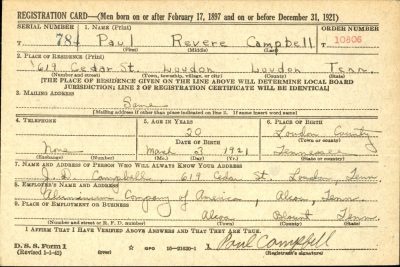 REGISTRATION CARD—(Men born on or after February 17, 1897 and on or before December 31, 1921)
SERIAL NUMBER 1. NAME (Print) ORDER NUMBER
784 Paul Revere Campbell 10806
(First) (Middle) (Last)
2. PLACE OF RESIDENCE (Print)
619 Cedar St. Loudon Loudon Tenn.
(Number and street) (Town, township, village, or city) (County) (State)
[THE PLACE OF RESIDENCE GIVEN ON THE LINE ABOVE WILL DETERMINE LOCAL BOARD
JURISDICTION; LINE 2 OF REGISTRATION CERTIFICATE WILL BE IDENTICAL]
3. MAILING ADDRESS
Same
[Mailing address if other than place indicated on line 2. If same insert word same]
4. TELEPHONE 5. AGE IN YEARS 6. PLACE OF BIRTH
20 Loudon County
DATE OF BIRTH (Town or county)
None Mar. 3 1921 Tennessee
(Exchange) (Number) (Mo.) (Day) (Yr.) (State or country)
7. NAME AND ADDRESS OF PERSON WHO WILL ALWAYS KNOW YOUR ADDRESS
J. D. Campbell 619 Cedar St. Loudon, Tenn.
8. EMPLOYER'S NAME AND ADDRESS
Aluminum Company of American, Alcoa, Tenn.
9. PLACE OF EMPLOYMENT OR BUSINESS
Alcoa Blount Tenn.
(Number and street or R. F. D. number) (Town) (County) (State)
I AFFIRM THAT I HAVE VERIFIED ABOVE ANSWERS AND THAT THEY ARE TRUE.
D. S. S. Form 1
(Revised 1-1-42) GPO 16-21630-1 Paul Campbell
(Registrant's signature)